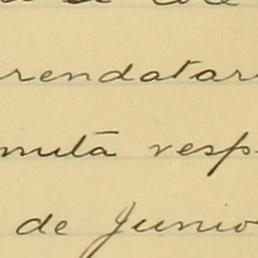 rendatar
muta resp
de Junio